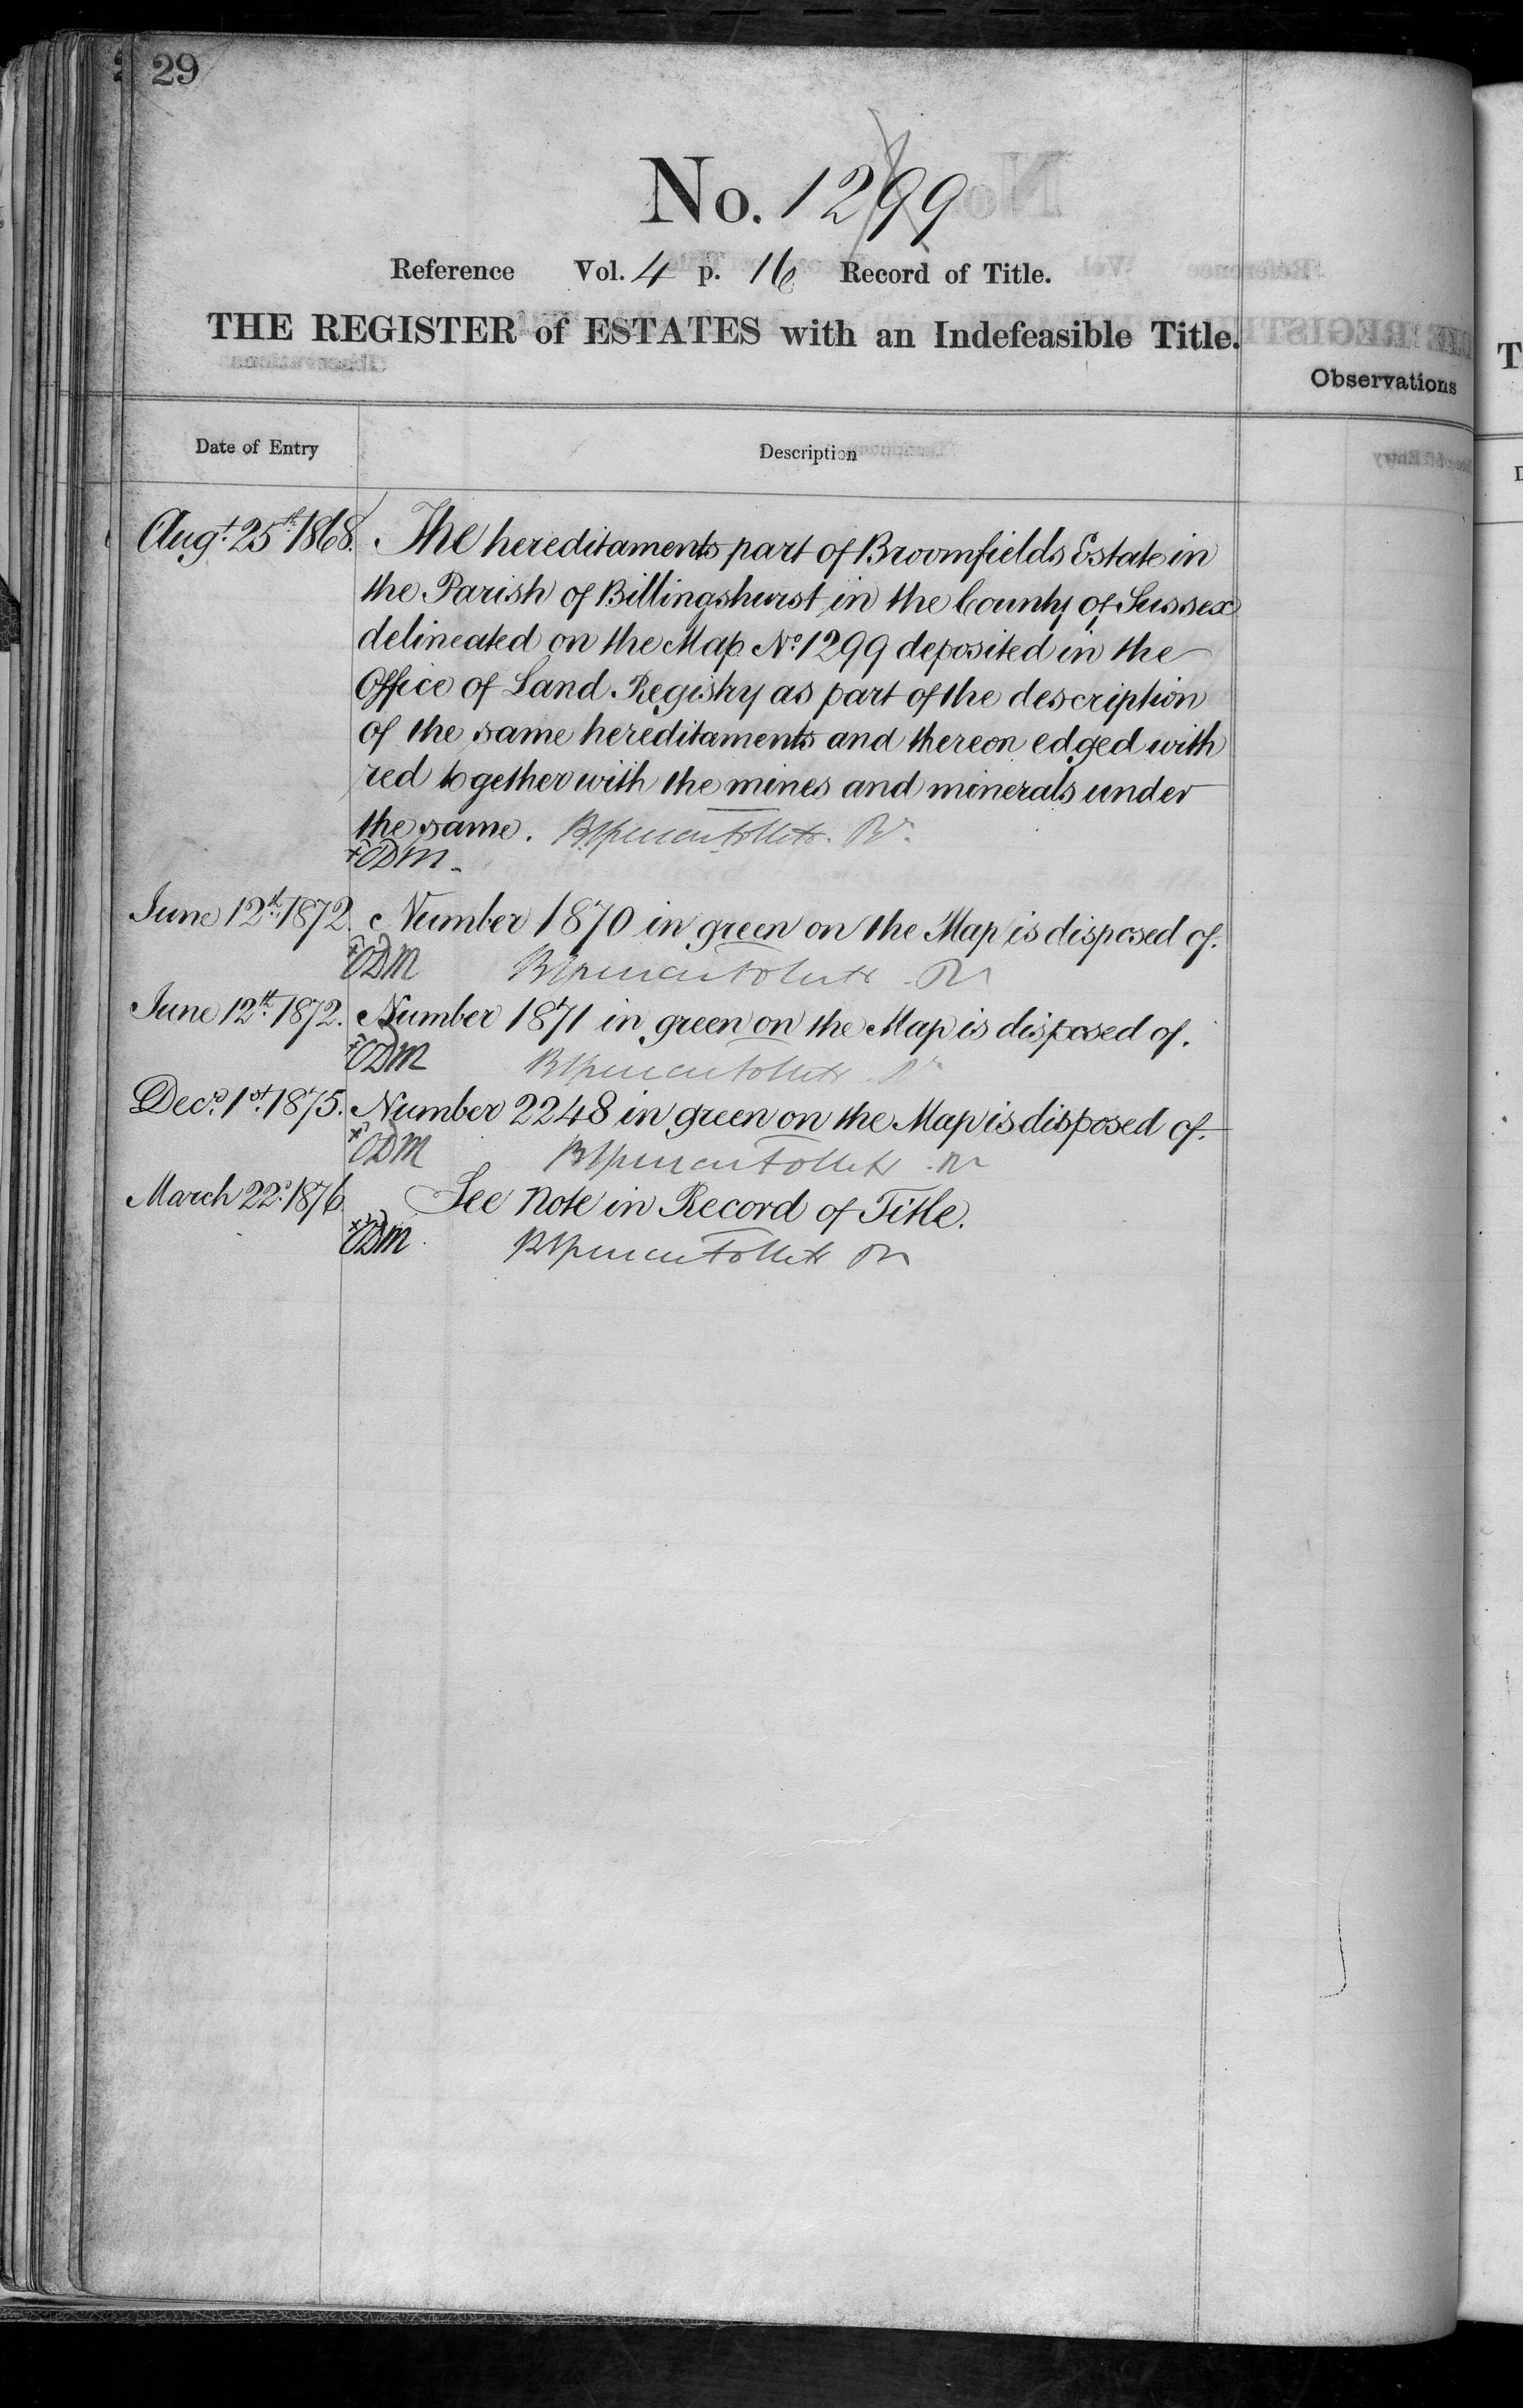 29
No. 1299
Reference Vol. 4 p. 16 Record of Title.
THE REGISTER of ESTATES with an Indefeasible Title.
Observations
Date of Entry Description
Augt. 25th 1868. The hereditaments part of Broomfields Estate in
the Parish of Billingshurst in the County of Sussex
delineated on the Map No. 1299 deposited in the
Office of Land Registry as part of the description
of the same hereditaments and thereon edged with
red together with the mines and minerals under
the same.
ODM
June 12th 1872. Number 1870 in green on the Map is disposed of.
ODM
June 12th 1872. Number 1871 in green on the Map is disposed of.
ODM
Decr. 1st. 1875. Number 2248 in green on the Map is disposed of.
ODM
March 22d. 1876 See Note in Record of Title.
ODM